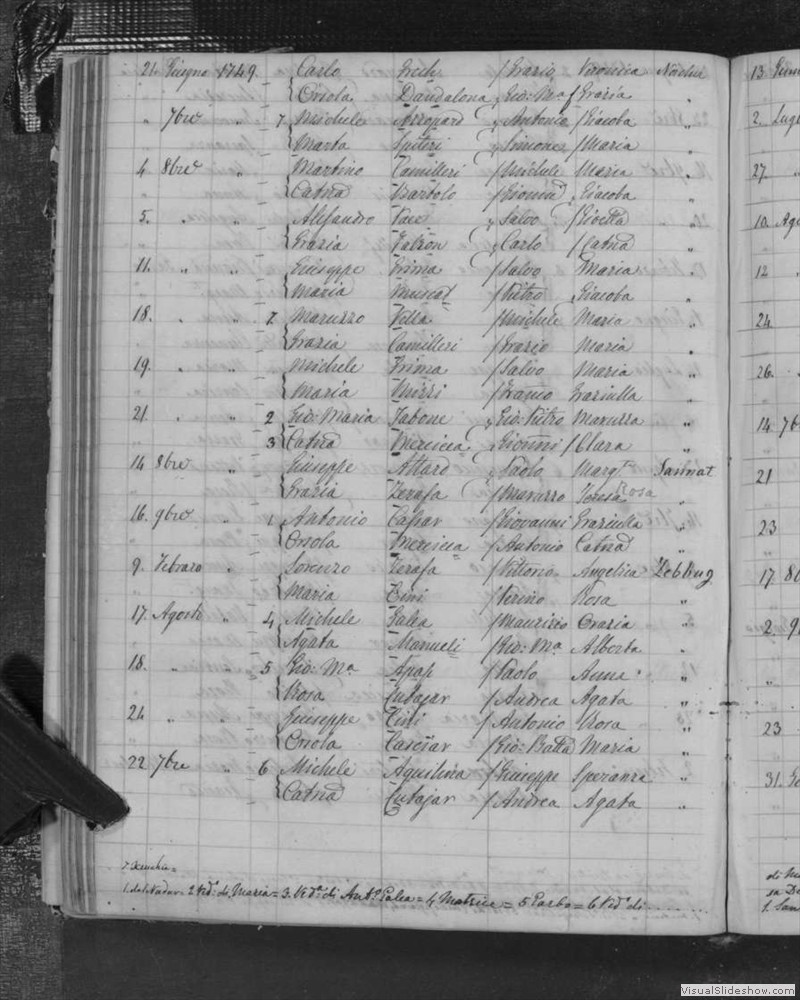 21. Giugno 1749. Carlo Grech Grazio Veronica Nadur
Orsola Dandalona Gio: Ma Grazia
" 7bre " 7 Michele Arropard Antonio Giacoba "
Marta Spiteri Simone Maria "
4 8bre " Martino Camilleri Michele Maria "
Catnd Bartolo Gionnd Giacoba "
5. " " Alessandro Salvo "
Grazia Carlo Catnd "
11. " " Giuseppe Grima Salvo Maria "
Maria Muscat Pietro Giacoba "
18. " " 7 Maruzzo Vella Michele Maria "
Grazia Camilleri Grazio Maria "
19. " " Michele Grima Salvo Maria "
Maria Mizzi Graziulla "
21. " " 2 Gio: Maria Tabone Gio: Pietro Maruzza "
3 Catnd Mercieca Gionni Clara "
14 8bre " Giuseppe Attard Paolo Margta Sannat
Grazia Zerafa Maruzzo Teresa Rosa "
16. 9bre " 1 Antonio Capar Giovanni Graziulla "
Orsola Mercieca Antonio Catnd "
9. Febraro " Lorenzo Zerafa Vittorio Angelica Zebbug
Maria Cini Pierino Rosa "
17. Agosto " 4 Michele Galea Maurizio Grazia "
Agata Manueli Gio: Ma Alberta "
18. " " 5 Gio: Ma Apap Paolo Anna "
Rosa Cutajar Andrea Agata "
24 " " Giuseppe Cini Antonio Rosa "
Orsola Gio: Batta Maria "
22. 7bre " 6 Michele Aquilina Giuseppe Speranza "
Catnd Cutajar Andrea Agata "
7. Xeuchia =
1. del Nadur = 2 Vido di Maria = 3. Vida di Anto Galea = 4 Matrice = 5 Garbo = 6 Vido di
13
2. Lug
27
10. Ago
12
24
26.
14 7b
21
23
17 8b
2. 9
"
23
31. Ge
1. San
VisualSlideshow.com